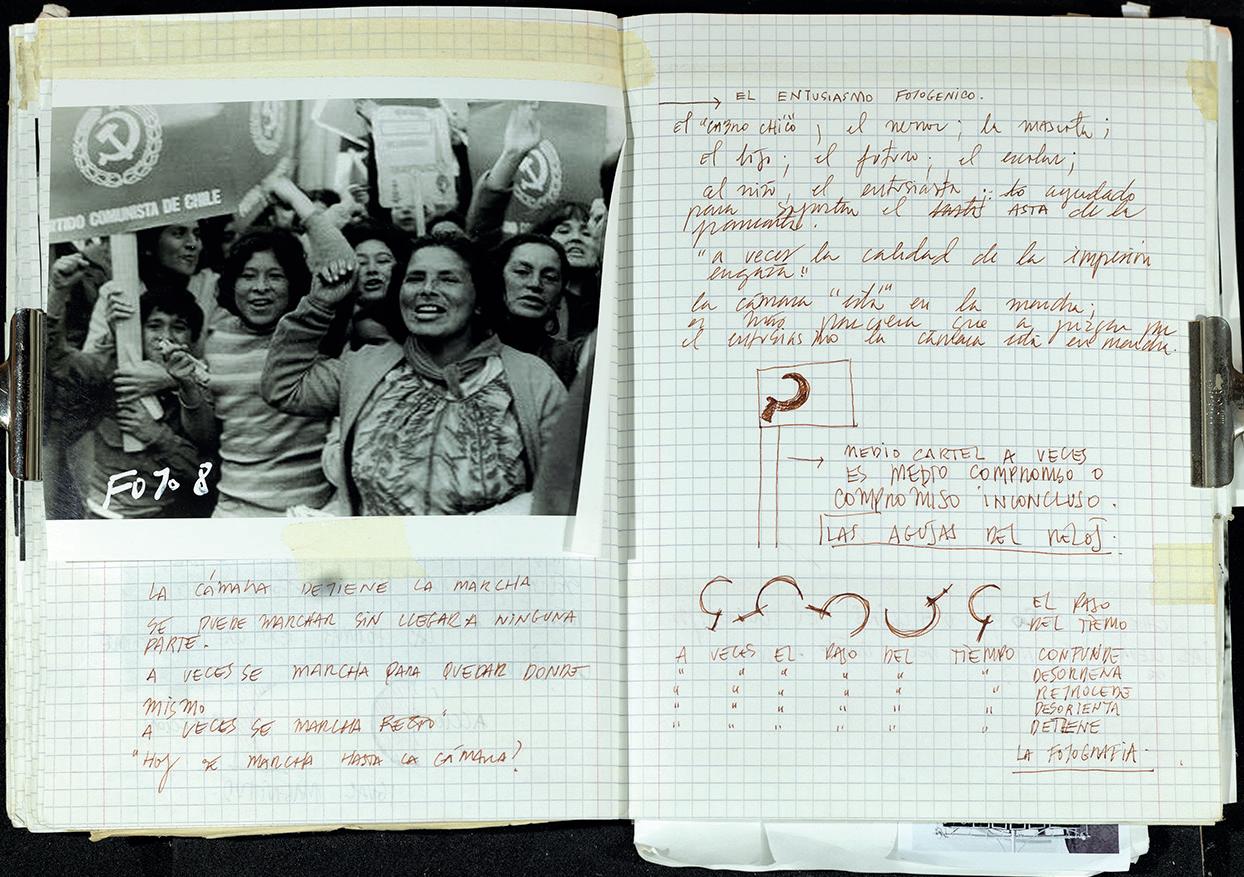 PARTIDO COMUNISTA DE CHILE
FOTO 8
LA CÁMARA DETIENE LA MARCHA
SE PUEDE MARCHAR SIN LLEGAR A NINGUNA
PARTE.
A VECES SE MARCHA PARA QUEDAR DONDE
MISMO
A VECES SE MARCHA
"HOY SE MARCHA HASTA LA CÁMARA?
EL ENTUSIASMO FOTOGENICO.
El "CABRO CHICO", el menor; la mascota;
el hijo; el futuro; el escolar;
al niño, el entusiasta lo ayudado
para el ASTA de la
pancarta.
"a veces la calidad de la impresión
engaña"
la cámara "está" en la marcha;
es más pareciera que a juzgar por
el entusiasmo la cámara está en marcha.
MEDIO CARTEL A VECES
ES MEDIO COMPROMISO O
COMPROMISO INCONCLUSO.
LAS AGUJAS DEL RELOJ.
EL PASO
DEL TIEMO
A VECES EL PASO DEL TIEMPO CONFUNDE
" " " " " " DESORDENA
" " " " " " RETROCEDE
" " " " " " DESORIENTA
" " " " " " DETIENE
LA FOTOGRAFIA.